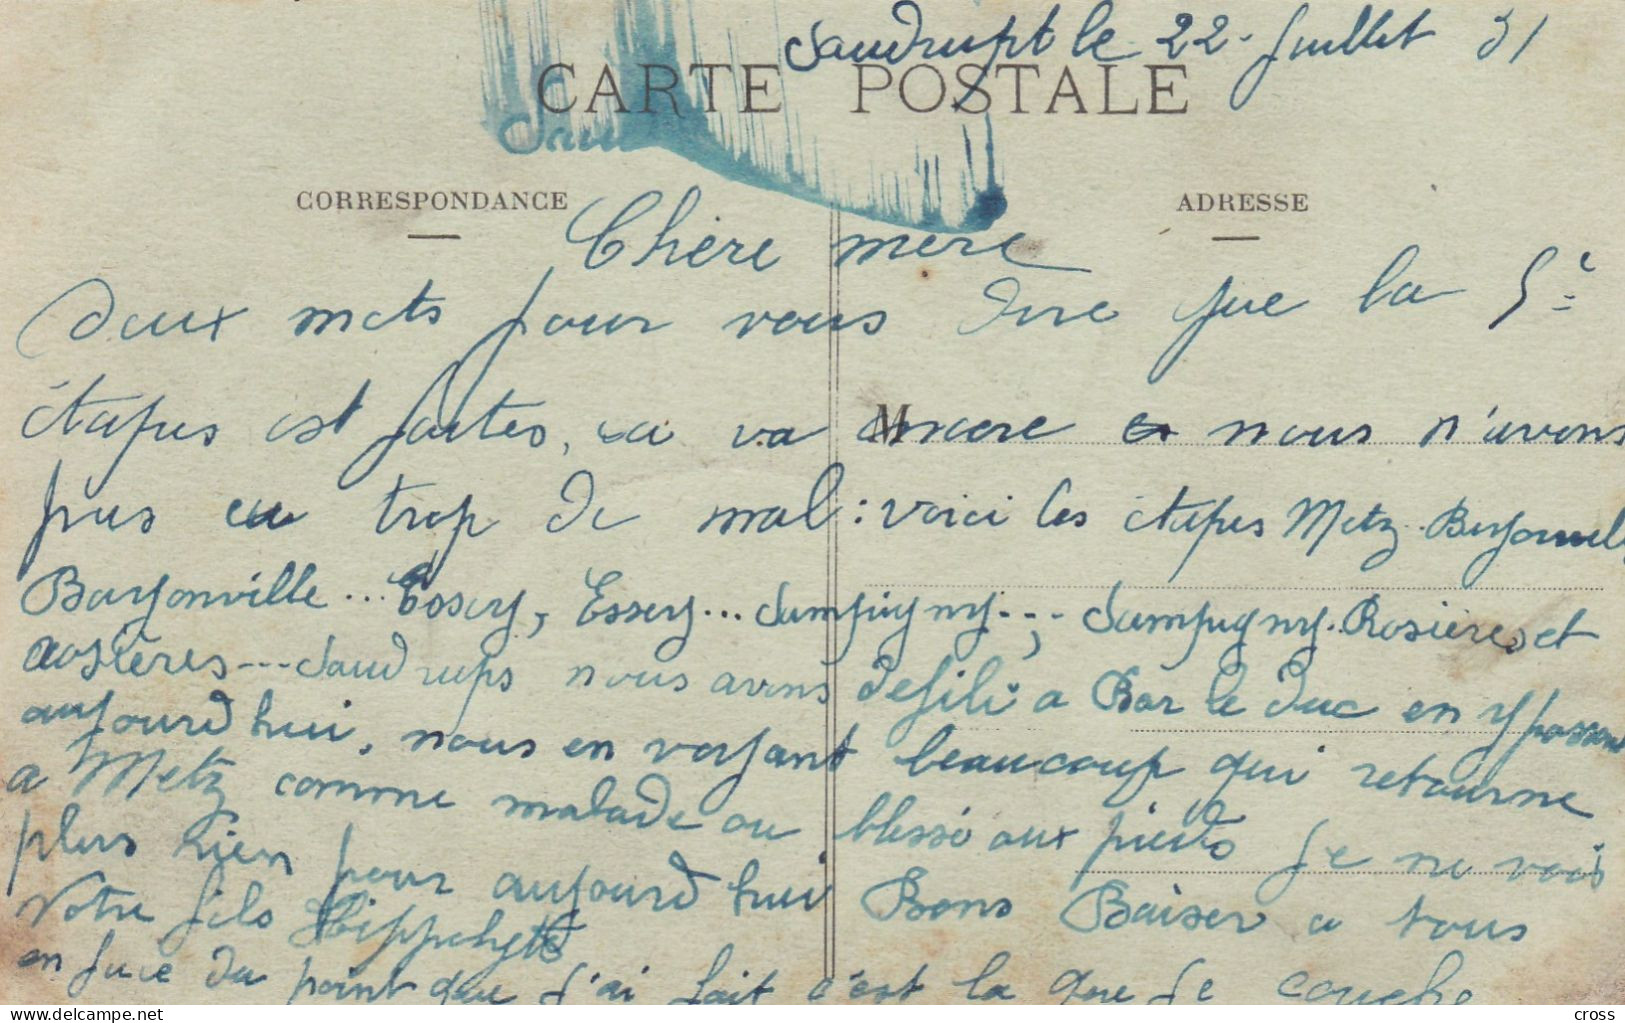 Saudrupt le 22 Juillet 31
CARTE POSTALE
Sau
CORRESPONDANCE
ADRESSE
Chère mère
Deux mots pour vous dire que la 5è
étapes est faites, ça va encore et nous n'avons
M
pas eu trop de mal : voici les étapes Metz - Bayonvil
Bayonville... Essey, Essey... Sampigny..., Sampigny. Rosières et
Rosières --- Saudrups nous avons defilé a Bar le duc en y passant
aujourd'hui, nous en voyant beaucoup qui retourne
a Metz comme malade ou blessé aux pieds Je ne vois
plus rien pour aujourd'hui Bons Baiser a tous
Votre fils Hippolyte
en face du point que j'ai fait c'est la que je couche
cross